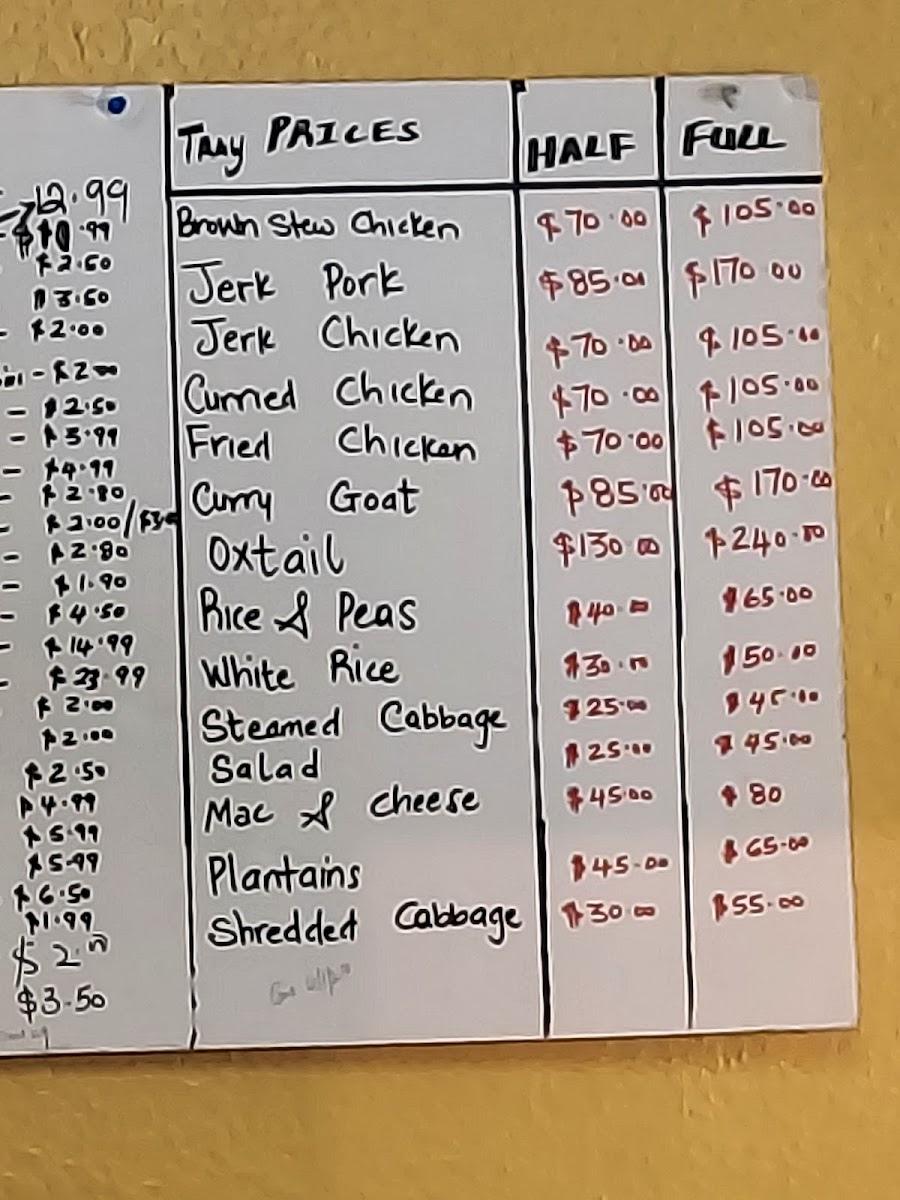 Tray PRICES HALF FULL
Brown Stew Chicken $70.00 $105.00
Jerk Pork $85.00 $170.00
Jerk Chicken $70.00 $105.00
Curried Chicken $70.00 $105.00
Fried Chicken $70.00 $105.00
Curry Goat $85.00 $170.00
Oxtail $130.00 $240.00
Rice & Peas $40.00 $65.00
White Rice $30.00 $50.00
Steamed Cabbage $25.00 $45.00
Salad $25.00 $45.00
Mac & cheese $45.00 $80
Plantains $45.00 $65.00
Shredded Cabbage $30.00 $55.00
12.99
$10.99
$2.50
$3.50
- $2.00
- $2.00
- $2.50
- $3.99
- $4.99
- $2.80
- $2.00/
- $2.80
- $1.90
- $4.50
- $14.99
- $23.99
$2.00
$2.00
$2.50
$4.99
$5.99
$5.99
$6.50
$1.99
$2.00
$3.50